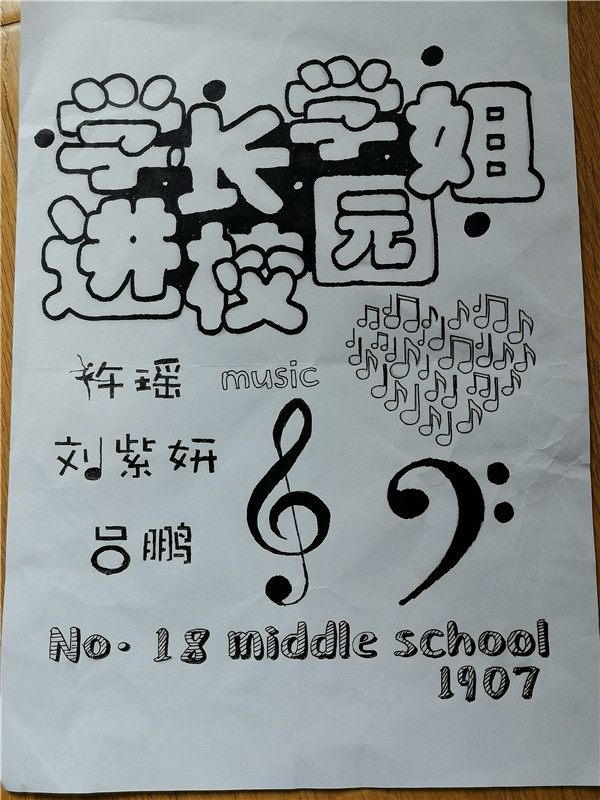 学长学姐
进校园
许瑶
music
刘紫妍
吕鹏
No. 18 middle school
1907